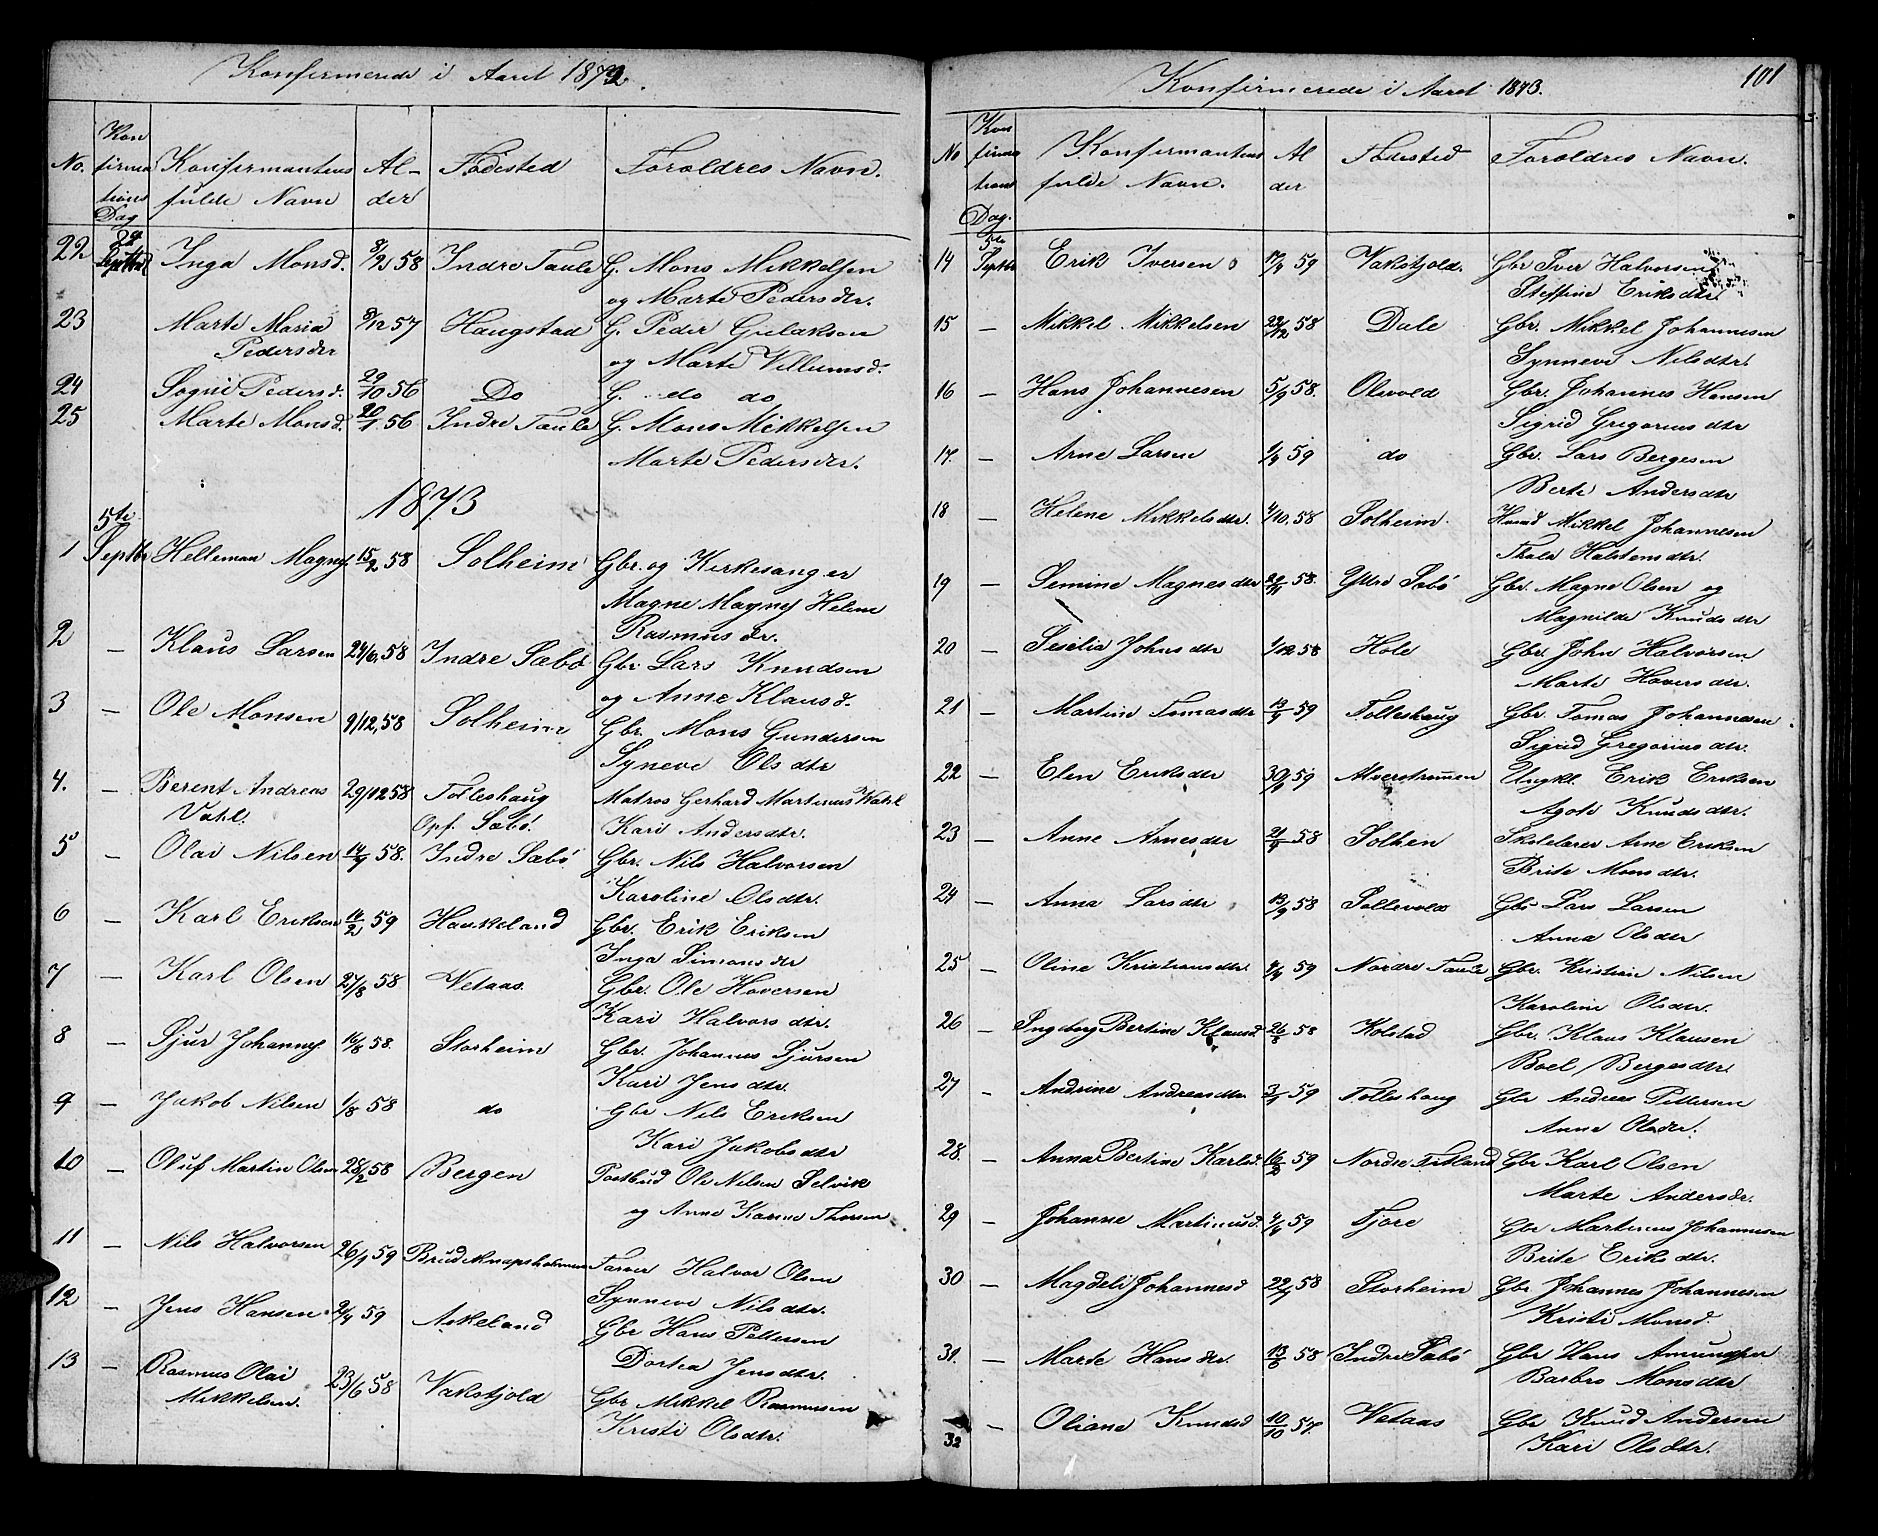 Konfirmerede i Aaret 1872.
No. Konfirmations Dag Konfirmantens fulde Navn Alder Födested Foroldres Navn.
22 29 Septbr Inga Monsd. 8/2 58 Indre Taule G. Mons Mikkelsen
og Marte Pedersdr.
23 Marte Maria 8/12 57 Haugstad G. Peder Gulaksen
Pedersdr og Marte Villumsd.
24 Sogni Pedersd. 29/10 56 Do G. do do
25 Marte Monsd. 20/1 56 Indre Taule G. Mons Mikkelsen
Marte Pedersdr.
1873
5te
1 Septbr Helleman Magnes 15/2 58 Solheim Gbr. og Kirkesanger
Magne Magnes Helene
Rasmusdr.
2 — Klaus Larsen 24/6, 58 Indre Sæbö Gbr. Lars Knudsen
og Anne Klausd.
3 — Ole Monsen 9/12, 58 Solheim Gbr. Mons Gundersen
Syneve Olsdtr
4. — Berent Andreas 29/12 58 Tolleshaug Matros Gerhard Martinus Vahl
Vahl. Opf. Sæbö. Kari Andersdtr.
5 — Olai Nilsen 14/9 58. Indre Sæbö Gbr. Nils Halvorsen
Karoline Olsdtr.
6 — Karl Eriksen 14/2 59 Haukeland Gbr. Erik Eriksen
Inga Simonsdr
7 — Karl Olsen 27/8 58 Vetaas. Gbr. Ole Hoversen
Kari Halvorsdtr.
8 — Sjur Johannes 16/8 58. Storheim Gbr. Johannes Sjursen
Kari Jensdtr.
9 — Jakob Nilsen 1/8 58 do Gbr Nils Eriksen
Kari Jakobsdtr
10 — Oluf Martin Olsen 28/2 58 Bergen Postbud Ole Nilsen Selvik
og Anne Karine Thorsen
11 — Nils Halvorsen 26/1 59 Brudeknapsholmen Farver Halvor Olsen
Synneve Nilsdtr.
12 — Jens Hansen 2/4 59 Askeland Gbr Hans Pettersen
Dortea Jensdtr.
13 — Rasmus Olai 23/6 58 Vakstjold Gbr Mikkel Rasmusen
Mikkelsen. Kristi Olsdtr.
Konfirmerede i Aaret 1873.
101
No Konfirmations Dag. Konfirmantens fulde Navn. Alder Födested Foroldres Navn.
5te
14 Septbr Erik Iversen 17/4 59 Vakstjold. Gbr Iver Halvorsen
Steffine Eriksdtr.
15 — Mikkel Mikkelsen 22/12 58 Dale Gbr. Mikkel Johannesen
Synneve Nilsdtr.
16 — Hans Johannesen 5/9 58. Olsvold Gbr. Johannes Hansen
Sigrid Gregoriusdtr
17. — Arne Larsen 1/4 59 do Gbr. Lars Bergesen
Berte Andersdtr
18 — Helene Mikkelsdtr. 4/10. 58 Solheim. Huusd Mikkel Johannesen
Thala Halstensdtr.
19 — Semine Magnesdtr 22/11 58. Ytre Sæbö Gbr. Magne Olsen og
Magnilde Knudsdtr
20 — Seselia Johnsdtr 1/12 58 Hole Gbr. John Halvorsen
Marte Hoversdtr.
21 — Martine Tomasdtr 13/4 59 Tolleshaug Gbr. Tomas Johannesen
Sigrid Gregoriusdtr.
22 — Elen Eriksdtr 30/4 59 Alverstrømen Ungkl. Erik Eriksen
Agote Knudsdtr.
23 — Anne Arnesdtr 21/9 58 Solhem Skolelærer Arne Eriksen
Brite Monsdtr.
24 — Anna Larsdtr 13/9 58 Sollevold Gbr Lars Larsen
Anna Olsdtr
25 — Oline Kristiansdtr 4/4 59 Nordre Taule Gbr. Kristian Nilsen
Karoline Olsdtr.
26 — Ingeborg Bertine Klausd. 26/8 58 Kolstad Gbr. Klaus Klausen
Boel Bergesdtr.
27 — Andrine Andreasdtr. 3/1 59 Tolleshaug Gbr Andreas Pettersen
Anna Olsdr.
28. — Anna Bertine Karlsd. 16/2 59 Nordre Titland Gbr Karl Olsen
Marte Andersdr.
29 — Johanne Martinusd. 4/6 59 Fjore Gbr Martinus Johannesen
Brite Eriksdtr.
30 — Magdeli Johannesd 22/7 58 Storheim Gbr Johannes Johannesen
Kristi Monsd.
31. — Marte Hansdtr. 13/8 58 Indre Sæbö Gbr Hans Amundsen
Barbro Monsdtr
32 — Oliane Knudsd 10/10 57. Vetaas Gbr Knud Andersen
Kari Olsdtr.